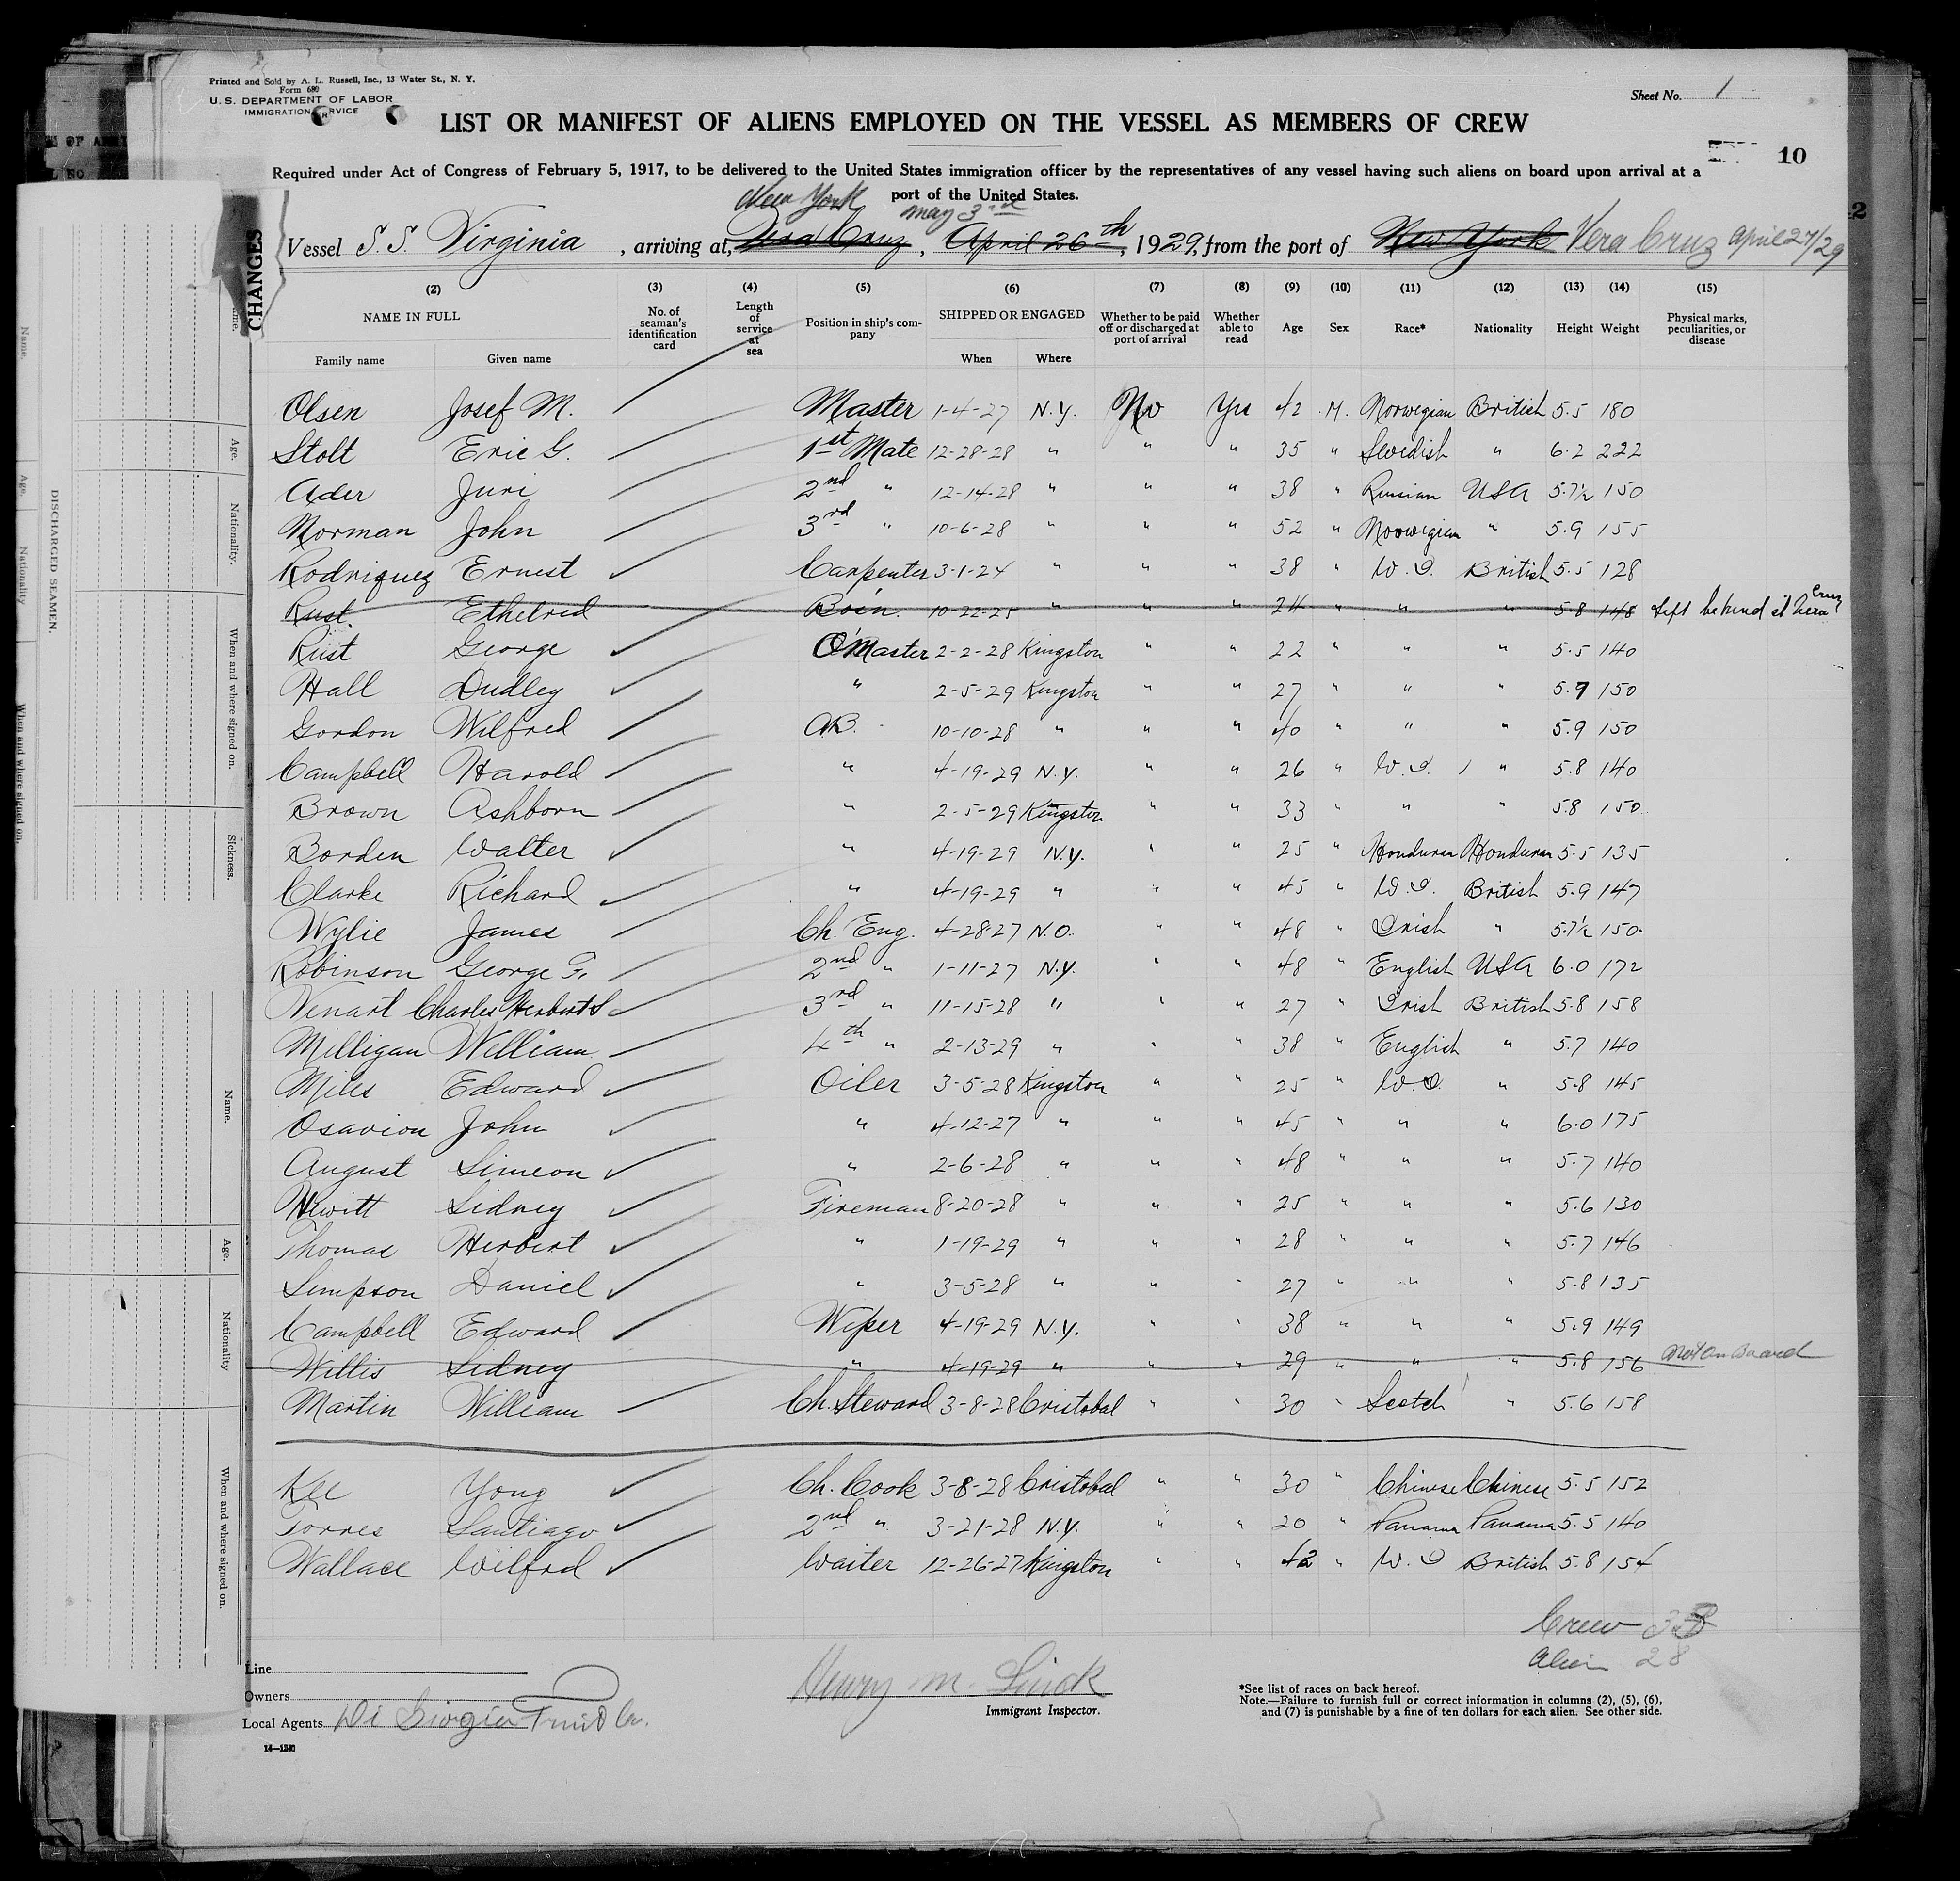 Printed and Sold by A. L. Russell, Inc., 13 Water St., N. Y.
Form 680
U. S. DEPARTMENT OF LABOR
IMMIGRATION SERVICE
Sheet No. 1
LIST OR MANIFEST OF ALIENS EMPLOYED ON THE VESSEL AS MEMBERS OF CREW
10
Required under Act of Congress of February 5, 1917, to be delivered to the United States immigration officer by the representatives of any vessel having such aliens on board upon arrival at a
port of the United States.
New York May 3rd
Vessel S.S. Virginia, arriving at, Vera Cruz, April 26th, 1929, from the port of New York Vera Cruz April 27/29
CHANGES
(2) (3) (4) (5) (6) (7) (8) (9) (10) (11) (12) (13) (14) (15)
NAME IN FULL
Family name Given name
No. of seaman's identification card
Length of service at sea
Position in ship's company
SHIPPED OR ENGAGED
When Where
Whether to be paid off or discharged at port of arrival
Whether able to read
Age Sex Race* Nationality Height Weight
Physical marks, peculiarities, or disease
Olsen Josef M. Master 1-4-27 N.Y. No Yes 42 M. Norwegian British 5.5 180
Stolt Eric G. 1st Mate 12-28-28 " " " 35 " Swedish " 6.2 222
Ader Juri 2nd " 12-14-28 " " " 38 " Russian USA 5.7½ 150
Norman John 3rd " 10-6-28 " " " 52 " Norwegian " 5.9 155
Rodriquez Ernest Carpenter 3-1-24 " " " 38 " W.I. British 5.5 128
Rust Ethelred Bosn. 10-22-25 " " " 24 " " " 5.8 148 Left behind at Vera Cruz
Rust George Q'Master 2-2-28 Kingston " " 22 " " " 5.5 140
Hall Dudley " 2-5-29 Kingston " " 27 " " " 5.9 150
Gordon Wilfred AB. 10-10-28 " " " 40 " " " 5.9 150
Campbell Harold " 4-19-29 N.Y. " " 26 " W.I. " 5.8 140
Brown Ashborn " 2-5-29 Kingston " " 33 " " " 5.8 150
Borden Walter " 4-19-29 N.Y. " " 25 " Honduran Honduran 5.5 135
Clarke Richard " 4-19-29 " " " 45 " W.I. British 5.9 147
Wylie James Ch. Eng. 4-28-27 N.O. " " 48 " Irish " 5.7½ 150
Robinson George F. 2nd " 1-11-27 N.Y. " " 48 " English USA 6.0 172
Nenart Charles Herbert S 3rd " 11-15-28 " " " 27 " Irish British 5.8 158
Milligan William 4th " 2-13-29 " " " 38 " English " 5.7 140
Miles Edward Oiler 3-5-28 Kingston " " 25 " W.I. " 5.8 145
Osavion John " 4-12-27 " " " 45 " " " 6.0 175
August Simeon " 2-6-28 " " " 48 " " " 5.7 140
Hewitt Sidney Fireman 8-20-28 " " " 25 " " " 5.6 130
Thomas Herbert " 1-19-29 " " " 28 " " " 5.7 146
Simpson Daniel " 3-5-28 " " " 27 " " " 5.8 135
Campbell Edward Wiper 4-19-29 N.Y. " " 38 " " " 5.9 149
Willis Sidney " 4-19-29 " " " 29 " " " 5.8 156 Not On Board
Martin William Ch. Steward 3-8-28 Cristobal " " 30 " Scotch " 5.6 158
Kee Yong Ch. Cook 3-8-28 Cristobal " " 30 " Chinese Chinese 5.5 152
Torres Santiago 2nd " 3-21-28 N.Y. " " 20 " Panama Panama 5.5 140
Wallace Wilfred Waiter 12-26-27 Kingston " " 42 " W.I. British 5.8 154
Crew
Alien 28
Line
Owners
Local Agents Di Giorgio Fruit Co.
Henry M. Linck
Immigrant Inspector.
*See list of races on back hereof.
Note.—Failure to furnish full or correct information in columns (2), (5), (6),
and (7) is punishable by a fine of ten dollars for each alien. See other side.
14—1240
DISCHARGED SEAMEN.
Name.
Age.
Nationality.
When and where signed on.
Sickness.
Name.
Age.
Nationality
When and where signed on.